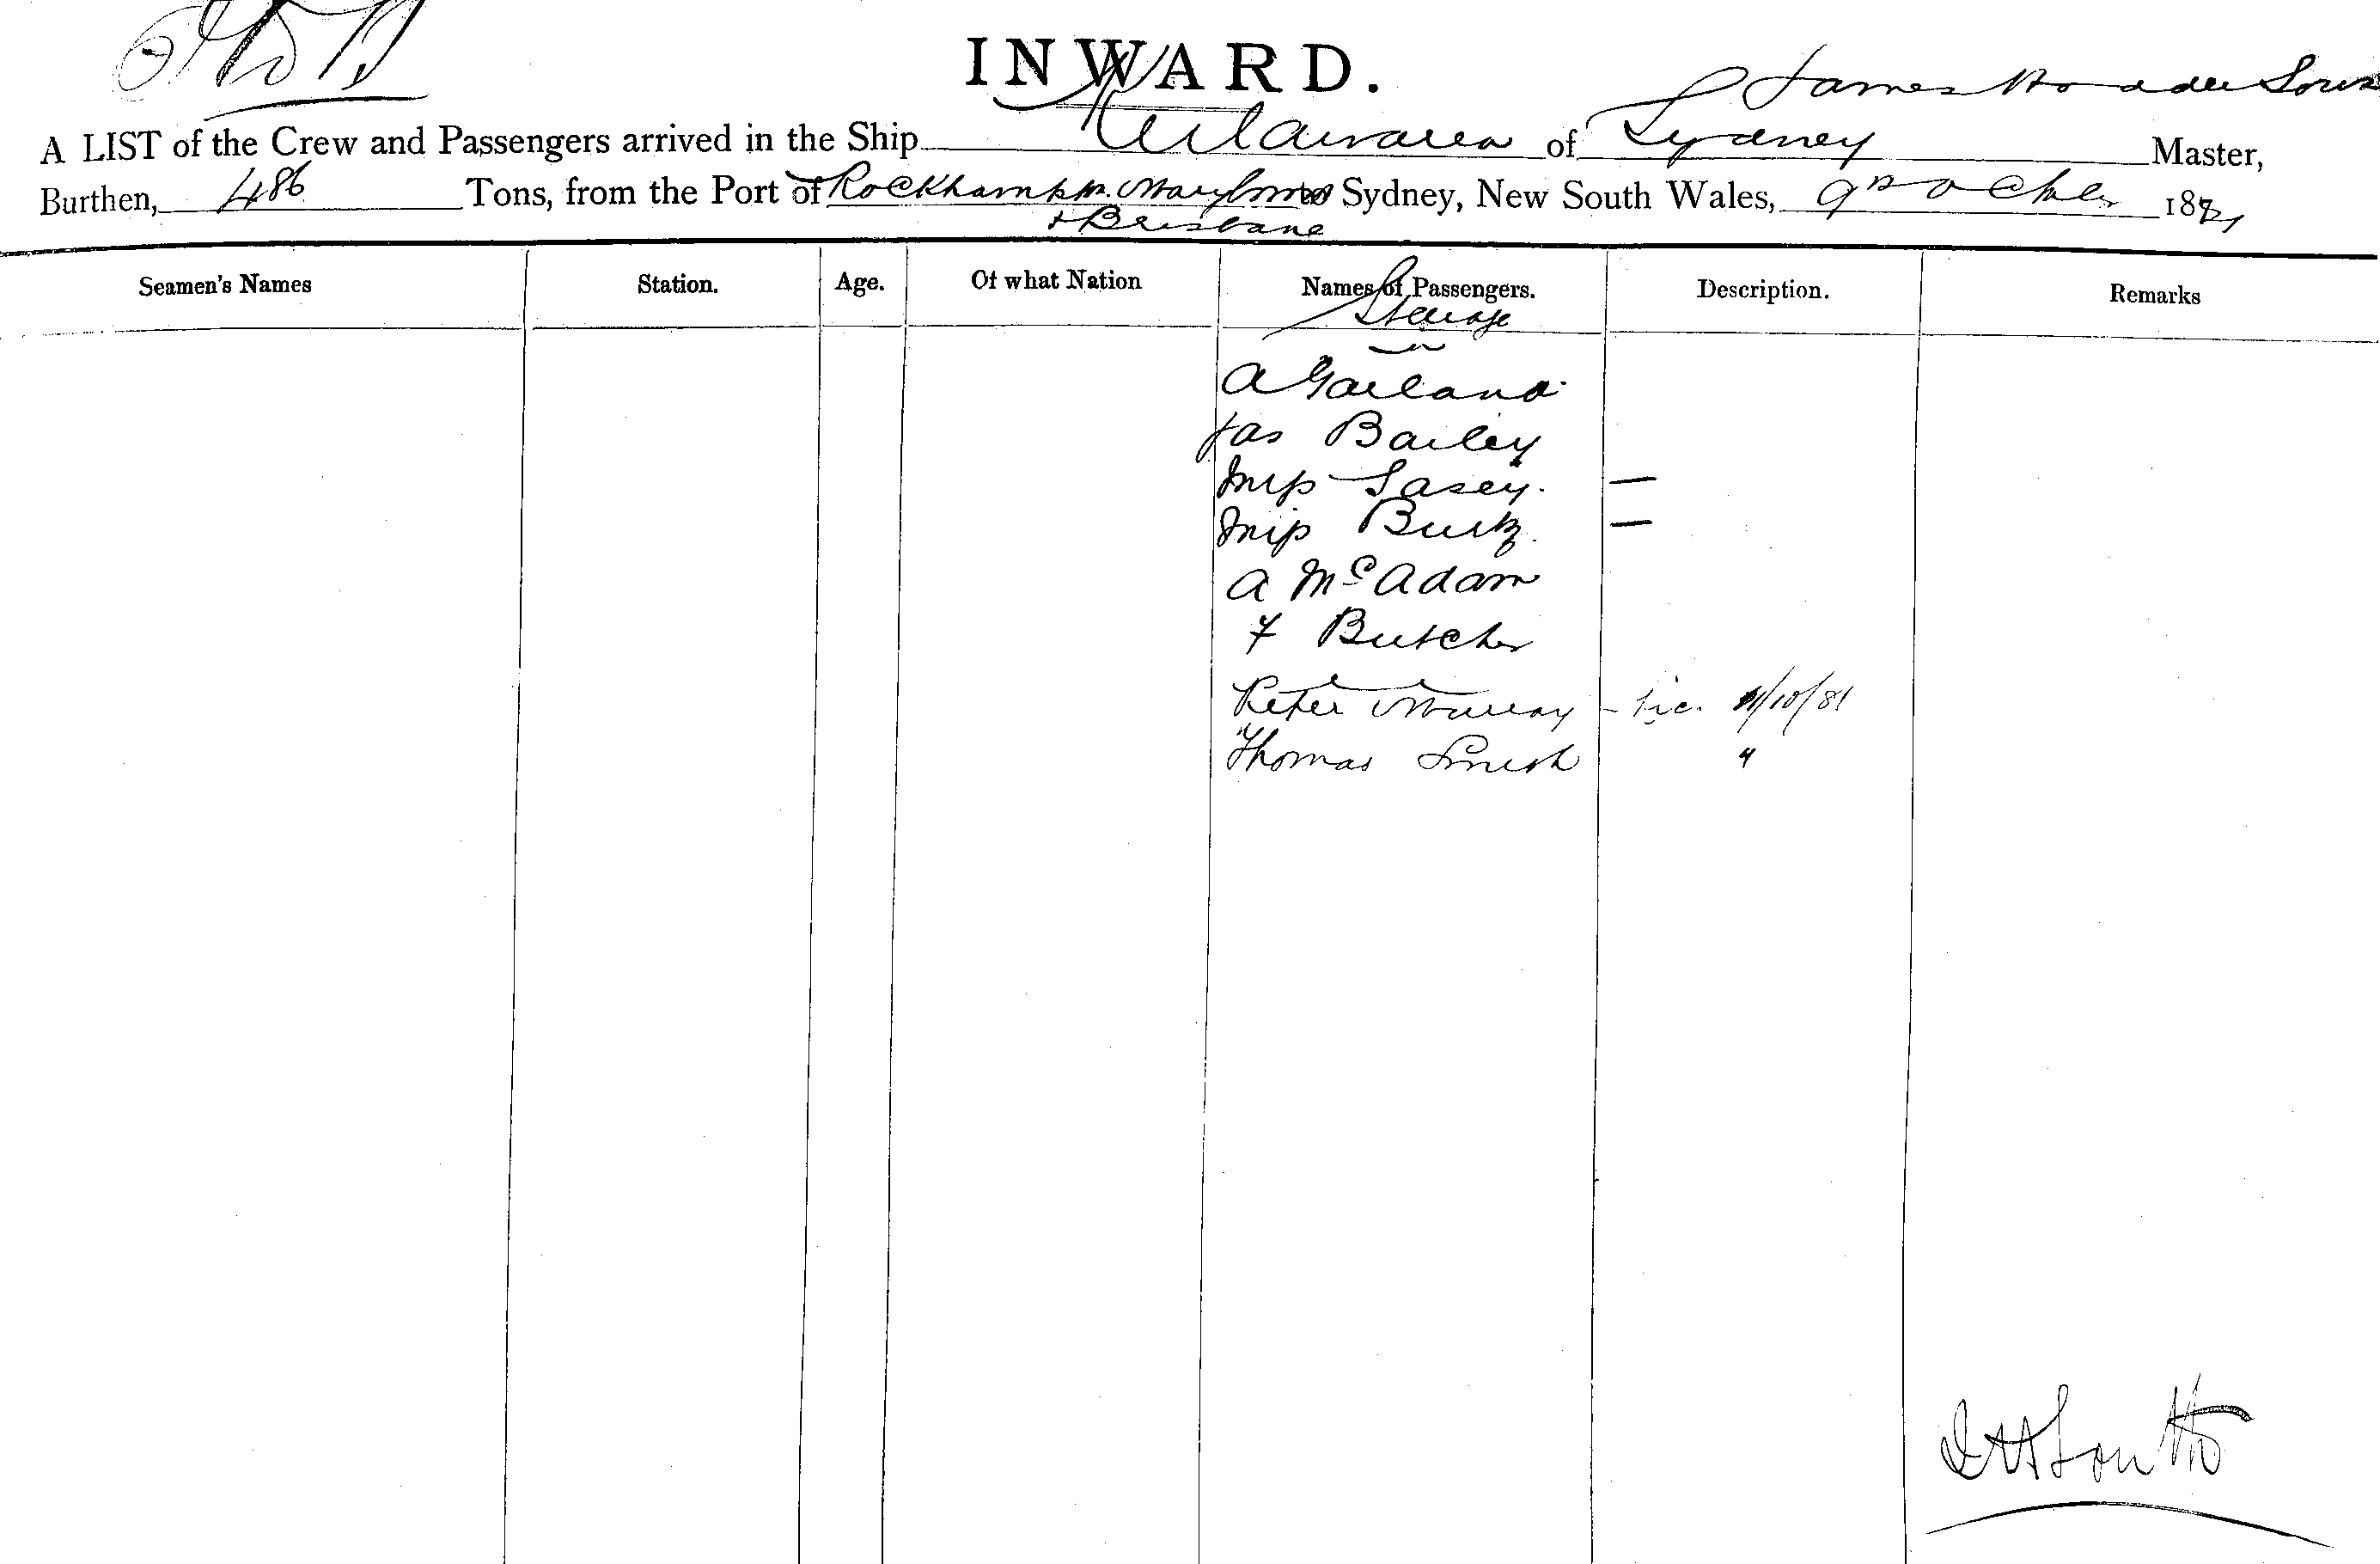 INWARD.
A LIST of the Crew and Passengers arrived in the Ship of Sydney James South Master,
Burthen, 486 Tons, from the Port of Rockhampton Maryboro to Sydney, New South Wales, 9th October 1881
+ Brisbane
Seamen's Names Station. Age. Of what Nation Names of Passengers. Description. Remarks
Steerage
A Garland
Jas Bailey
Miss Lasey. —
Miss Burk. —
A McAdam
F Butcher
Peter Murray - Lic. 11/10/81
Thomas Smith "
South